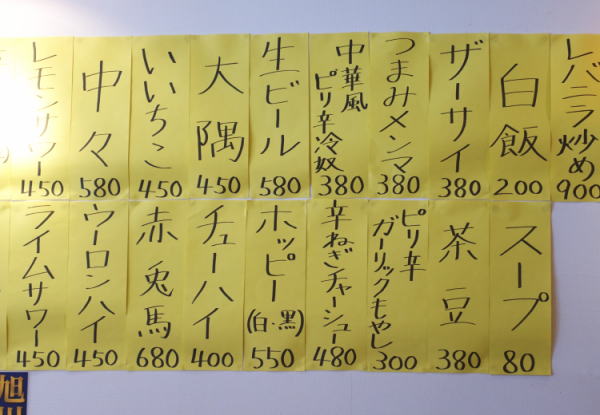 レバニラ炒め
900
白飯
200
ザーサイ
380
つまみメンマ
380
中華風
ピリ辛冷奴
380
生ビール
580
大隅
450
いいちこ
450
中々
580
レモンサワー
450
スープ
80
茶豆
380
ピリ辛
ガーリックもやし
300
辛ねぎチャーシュー
480
ホッピー
(白・黒)
550
チューハイ
400
赤兎馬
680
ウーロンハイ
450
ライムサワー
450
旭川